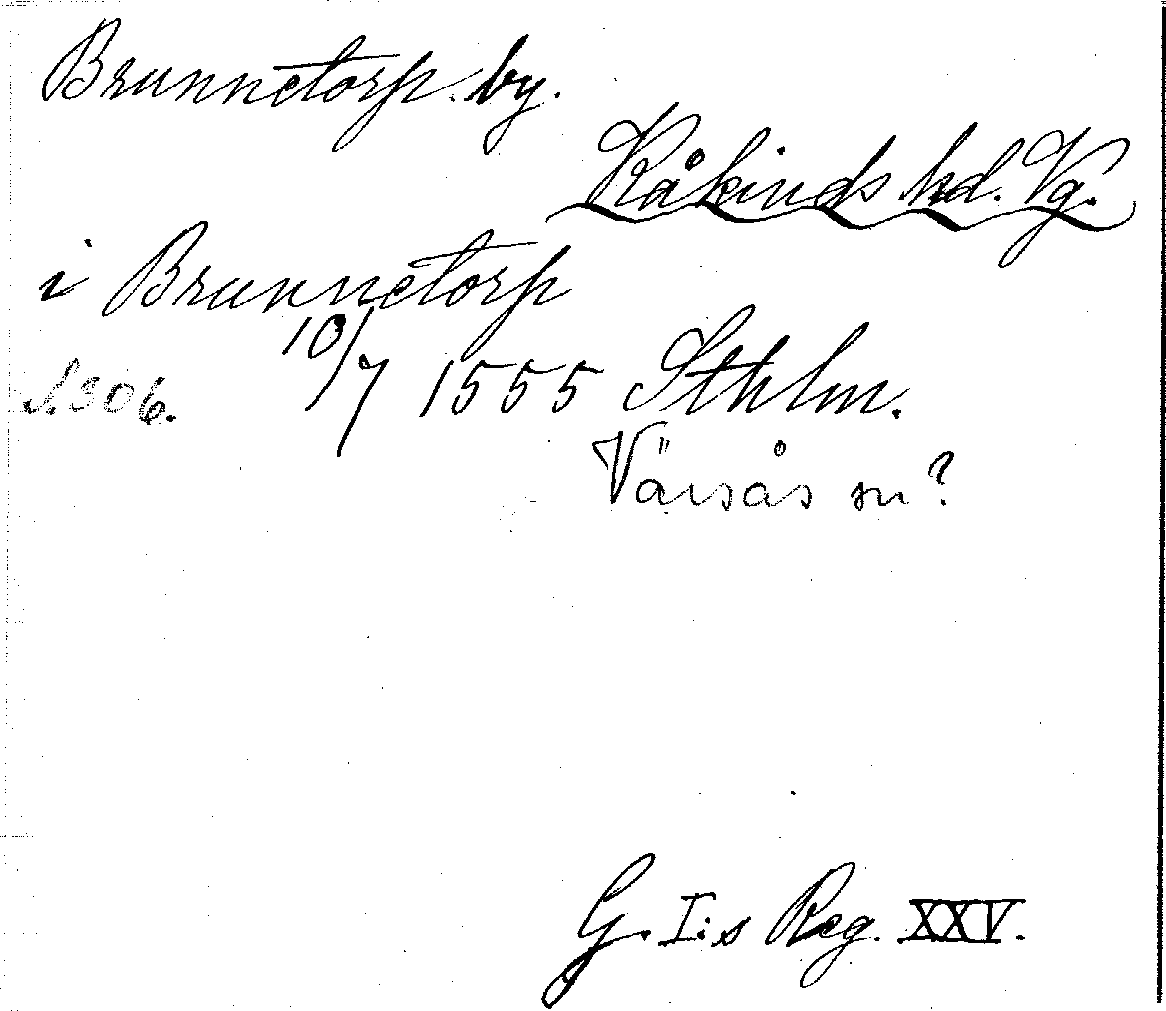 Brunnetorp. by.
Kåkinds hd. Vg.
i Brunnetorp
s. 306. 10/7 1555 Sthlm.
Värsås sn?
G. I:s Reg. XXV.